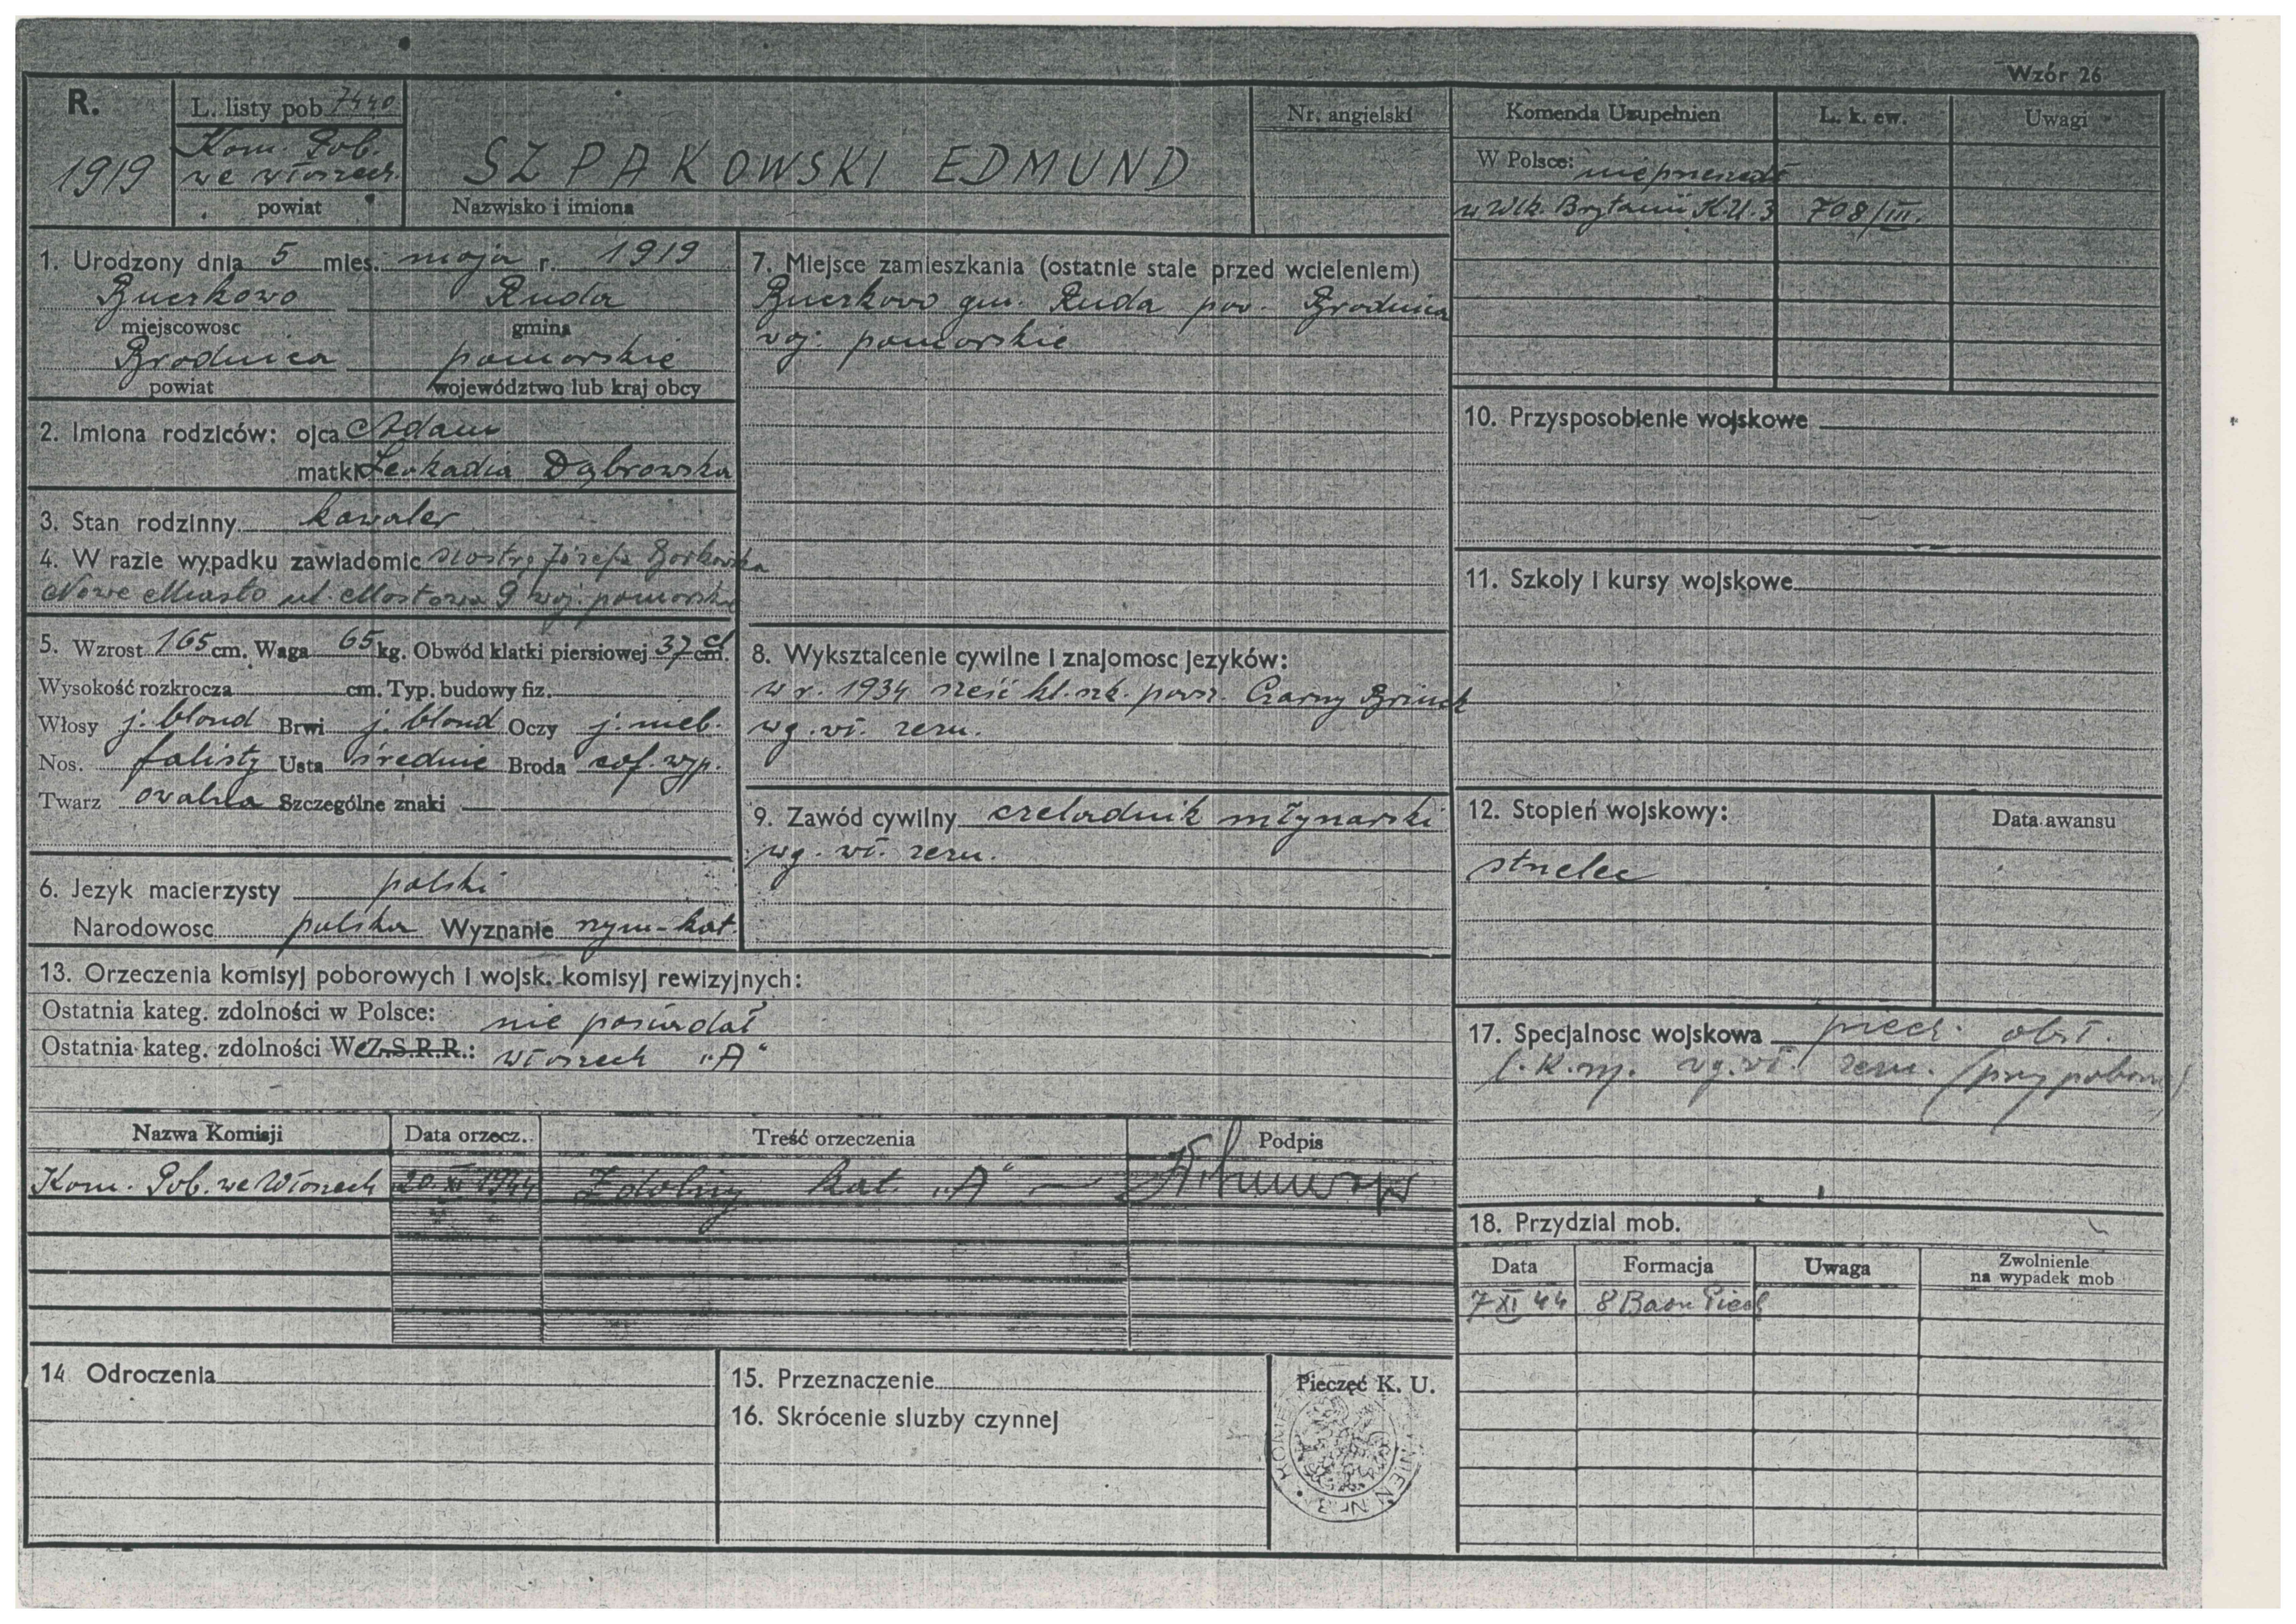 Wzór 26
R.
1919
L. listy pob 7440
Kom. Pob.
we Włoszech.
powiat
SZPAKOWSKI EDMUND
Nazwisko i imiona
Nr. angielski
Komenda Uzupełnien
L. k. ew.
Uwagi
W Polsce:
w Wlk. Brytanii K.U. 3 708/III.
1. Urodzony dnia 5 mies. maja r. 1919
Ruda
miejscowosc gmina
Brodnica pomorskie
powiat województwo lub kraj obcy
2. Imiona rodziców: ojca Adam
matki Leokadia Dąbrowska
3. Stan rodzinny kawaler
4. W razie wypadku zawiadomic siostrę Józefa Borkowska
Nowe Miasto ul. Mostowa 9 woj. pomorskie
5. Wzrost 165 cm. Waga 65 kg. Obwód klatki piersiowej 37 cm.
Wysokość rozkrocza cm. Typ. budowy fiz.
Włosy j. blond Brwi j. blond Oczy j. nieb.
Nos. falisty Usta średnie Broda cof. wyp.
Twarz owalna Szczególne znaki —
6. Jezyk macierzysty polski
Narodowosc polska Wyznanie rzym-kat.
7. Miejsce zamieszkania (ostatnie stale przed wcieleniem)
gm. Ruda pow. Brodnica
woj. pomorskie
8. Wyksztalcenie cywilne i znajomosc jezyków:
w r. 1934 sześć kl. szk. powsz. Czarny Brinsk
wg. wł. zezn.
9. Zawód cywilny czeladnik młynarski
wg. wł. zezn.
10. Przysposobienie wojskowe
11. Szkoly i kursy wojskowe
12. Stopień wojskowy:
Data awansu
strzelec
13. Orzeczenia komisyj poborowych i wojsk. komisyj rewizyjnych:
Ostatnia kateg. zdolności w Polsce: nie posiadał
Ostatnia kateg. zdolności We Z.S.R.R.: Włoszech "A"
Nazwa Komisji
Data orzecz.
Treść orzeczenia
Podpis
Kom. Pob. we Włoszech 20.XI 1944 Zdolny kat. "A" —
14 Odroczenia
15. Przeznaczenie
16. Skrócenie sluzby czynnej
Pieczęć K. U.
NR. 3
17. Specjalnosc wojskowa piech. obsł.
wg. wł. zezn. (przy poborze)
18. Przydzial mob.
Data
Formacja
Uwaga
Zwolnienie
na wypadek mob
7 XI 44 8 Baon Piech